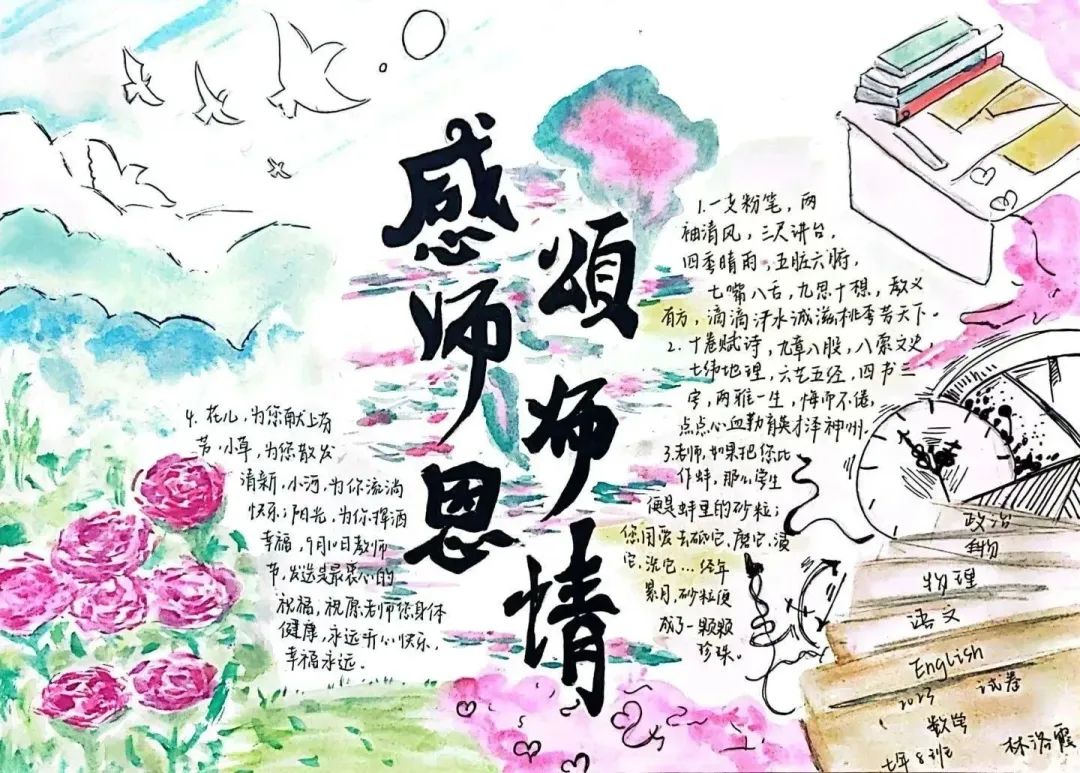 感师恩
颂师情
1.一支粉笔，两
袖清风，三尺讲台，
四季晴雨，五脏六腑，
七嘴八舌，九思十想，教义
有方，滴滴汗水诚滋桃李芳天下。
2.十卷赋诗，九章八股，八索文史，
七纬地理，六艺五经，四书三
字，两雅一生，悔师不倦，
点点心血勤育英才泽神州。
3.老师，如果把您比
作蚌，那么学生
便是蚌里的砂粒；
您用爱去舐它，磨它，浸
它，洗它…经年
累月，砂粒便
成了一颗颗
珍珠。
4.花儿，为您献上芬
芳，小草，为您散发
清新，小河，为你流淌
快乐；阳光，为你挥洒
幸福，9月10日教师
节，发送是最衷心的
祝福，祝愿老师您身体
健康，永远开心快乐，
幸福永远。
政治
生物
物理
语文
English
2023 试卷
数学
七年8班 林洛霞